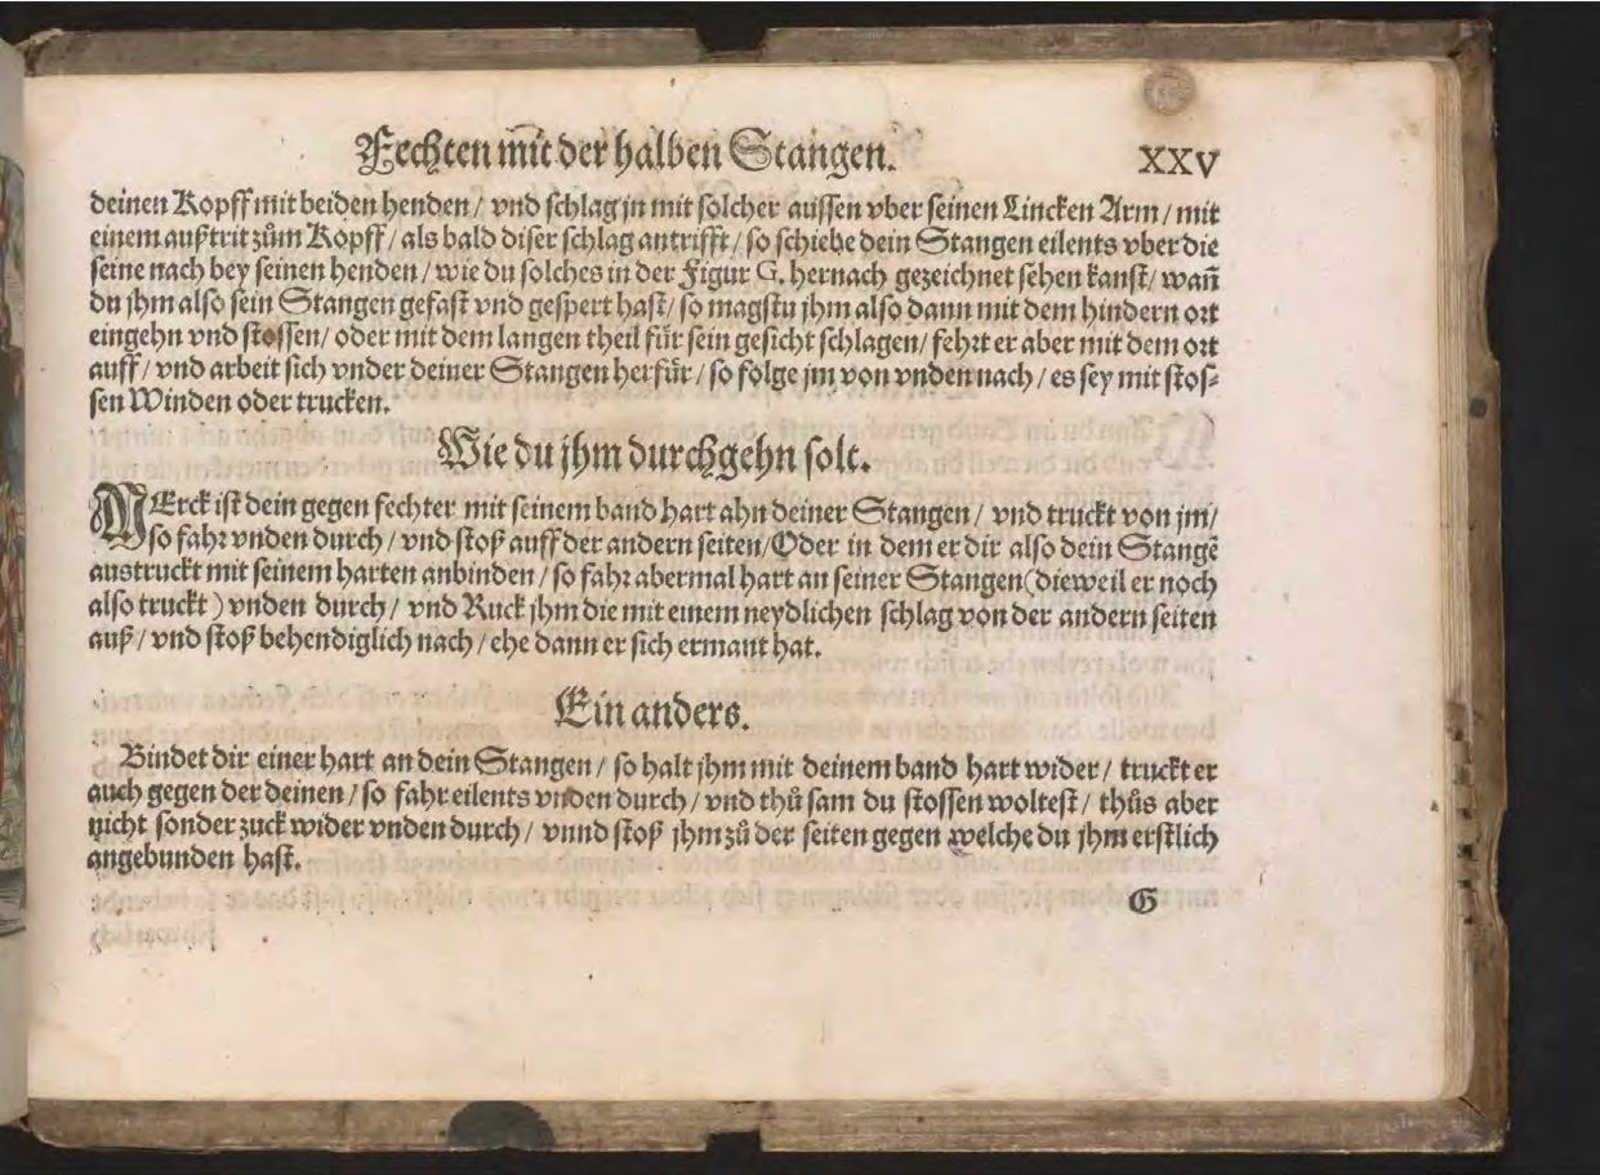 Fechten mit der halben Stangen. XXV
deinen Kopff mit beiden henden / vnd schlag jn mit solcher aussen vber seinen Lincken Arm / mit
einem außtrit zům Kopff / als bald diser schlag antrifft / so schiebe dein Stangen eilents vber die
seine nach bey seinen henden / wie du solches in der Figur G. hernach gezeichnet sehen kanst / wañ
du jhm also sein Stangen gefast vnd gespert hast / so magstu jhm also dann mit dem hindern ort
eingehn vnd stossen / oder mit dem langen theil fůr sein gesicht schlagen / fehrt er aber mit dem ort
auff / vnd arbeit sich vnder deiner Stangen herfůr / so folge jm von vnden nach / es sey mit stos⸗
sen Winden oder trucken.
Wie du jhm durchgehn solt.
MErck ist dein gegen fechter mit seinem band hart ahn deiner Stangen / vnd truckt von jm /
so fahr vnden durch / vnd stoß auff der andern seiten / Oder in dem er dir also dein Stangẽ
austruckt mit seinem harten anbinden / so fahr abermal hart an seiner Stangen (dieweil er noch
also truckt) vnden durch / vnd Ruck jhm die mit einem neydlichen schlag von der andern seiten
auß / vnd stoß behendiglich nach / ehe dann er sich ermant hat.
Ein anders.
Bindet dir einer hart an dein Stangen / so halt jhm mit deinem band hart wider / truckt er
auch gegen der deinen / so fahr eilents vnden durch / vnd thů sam du stossen woltest / thůs aber
nicht sonder zuck wider vnden durch / vnnd stoß jhm zů der seiten gegen welche du jhm erstlich
angebunden hast.
G